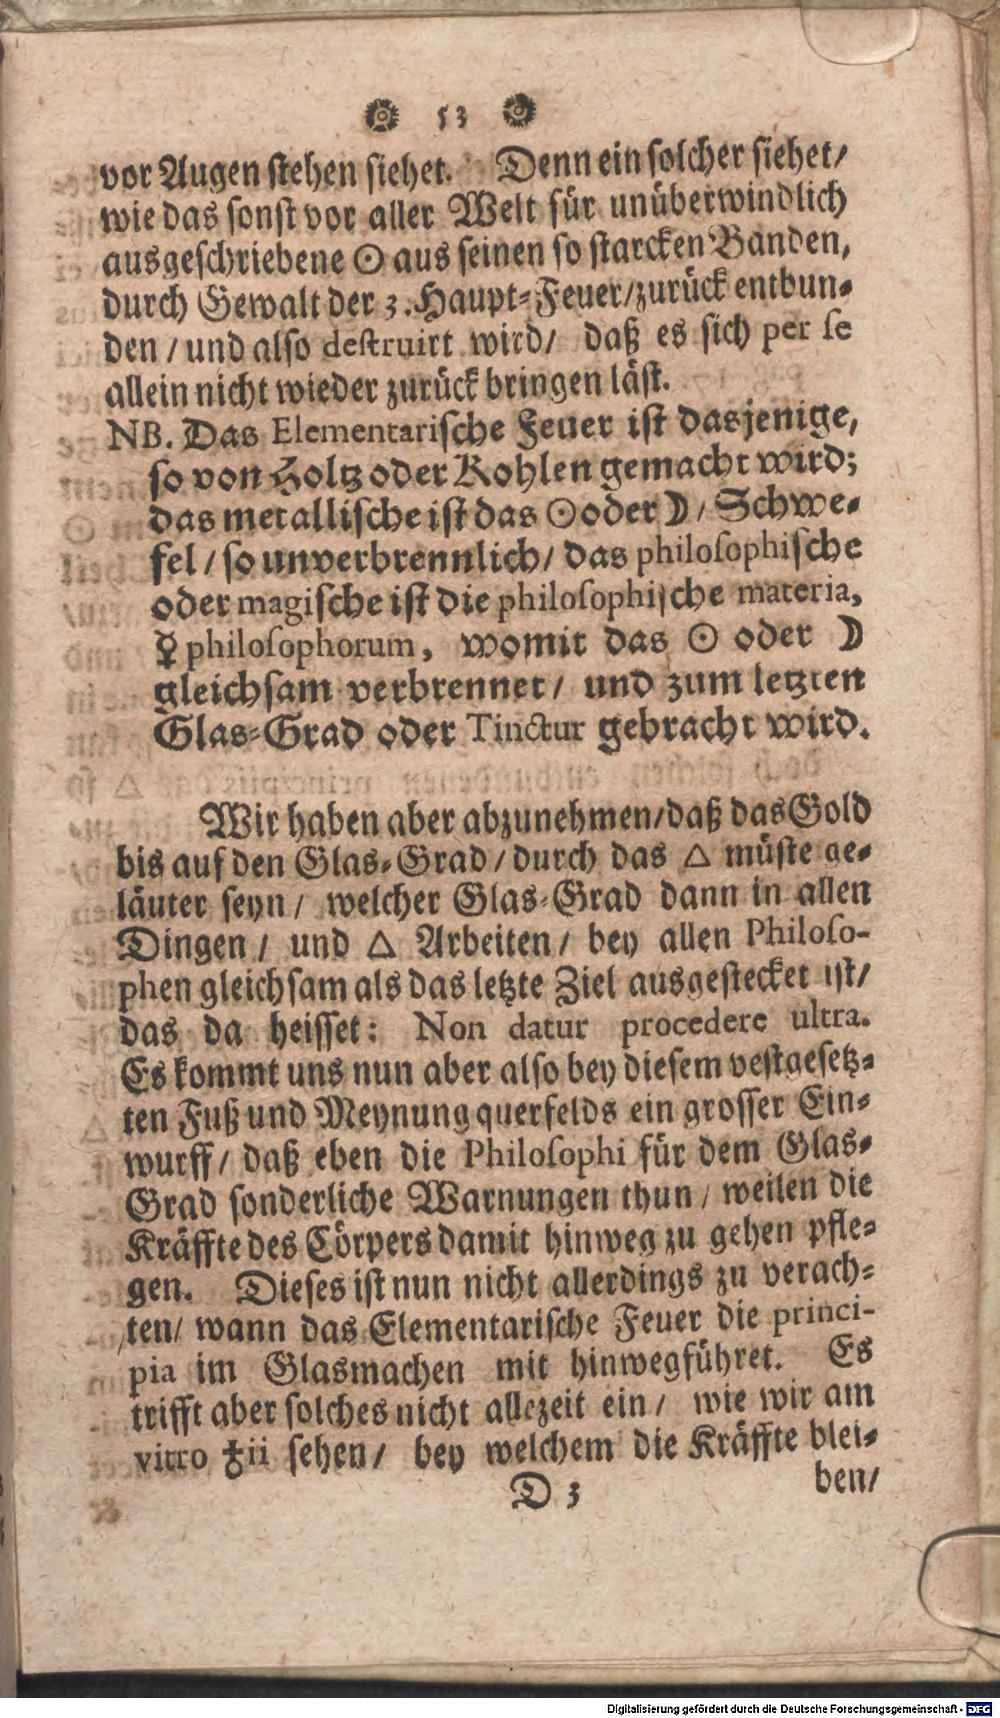 53
vor Augen stehen siehet. Denn ein solcher siehet/
wie das sonst vor aller Welt für unüberwindlich
ausgeschriebene ☉ aus seinen so starcken Banden,
durch Gewalt der 3. Haupt-Feuer/zurück entbun-
den / und also destruirt wird/ daß es sich per se
allein nicht wieder zurück bringen läst.
NB. Das Elementarische Feuer ist dasjenige,
so von Holtz oder Kohlen gemacht wird;
das metallische ist das ☉ oder ☽ / Schwe-
fel / so unverbrennlich/ das philosophische
oder magische ist die philosophische materia,
☿ philosophorum, womit das ☉ oder ☽
gleichsam verbrennet/ und zum letzten
Glas-Grad oder Tinctur gebracht wird.
Wir haben aber abzunehmen/daß das Gold
bis auf den Glas-Grad / durch das △ müste ge-
läuter seyn / welcher Glas-Grad dann in allen
Dingen / und △ Arbeiten / bey allen Philoso-
phen gleichsam als das letzte Ziel ausgestecket ist/
das da heisset: Non datur procedere ultra.
Es kommt uns nun aber also bey diesem vestgesetz-
ten Fuß und Meynung querfelds ein grosser Ein-
wurff / daß eben die Philosophi für dem Glas-
Grad sonderliche Warnungen thun / weilen die
Kräffte des Cörpers damit hinweg zu gehen pfle-
gen. Dieses ist nun nicht allerdings zu verach-
ten/ wann das Elementarische Feuer die princi-
pia im Glasmachen mit hinwegführet. Es
trifft aber solches nicht allezeit ein / wie wir am
vitro ♁ii sehen / bey welchem die Kräffte blei-
D 3 ben/
Digitalisierung gefördert durch die Deutsche Forschungsgemeinschaft - DFG